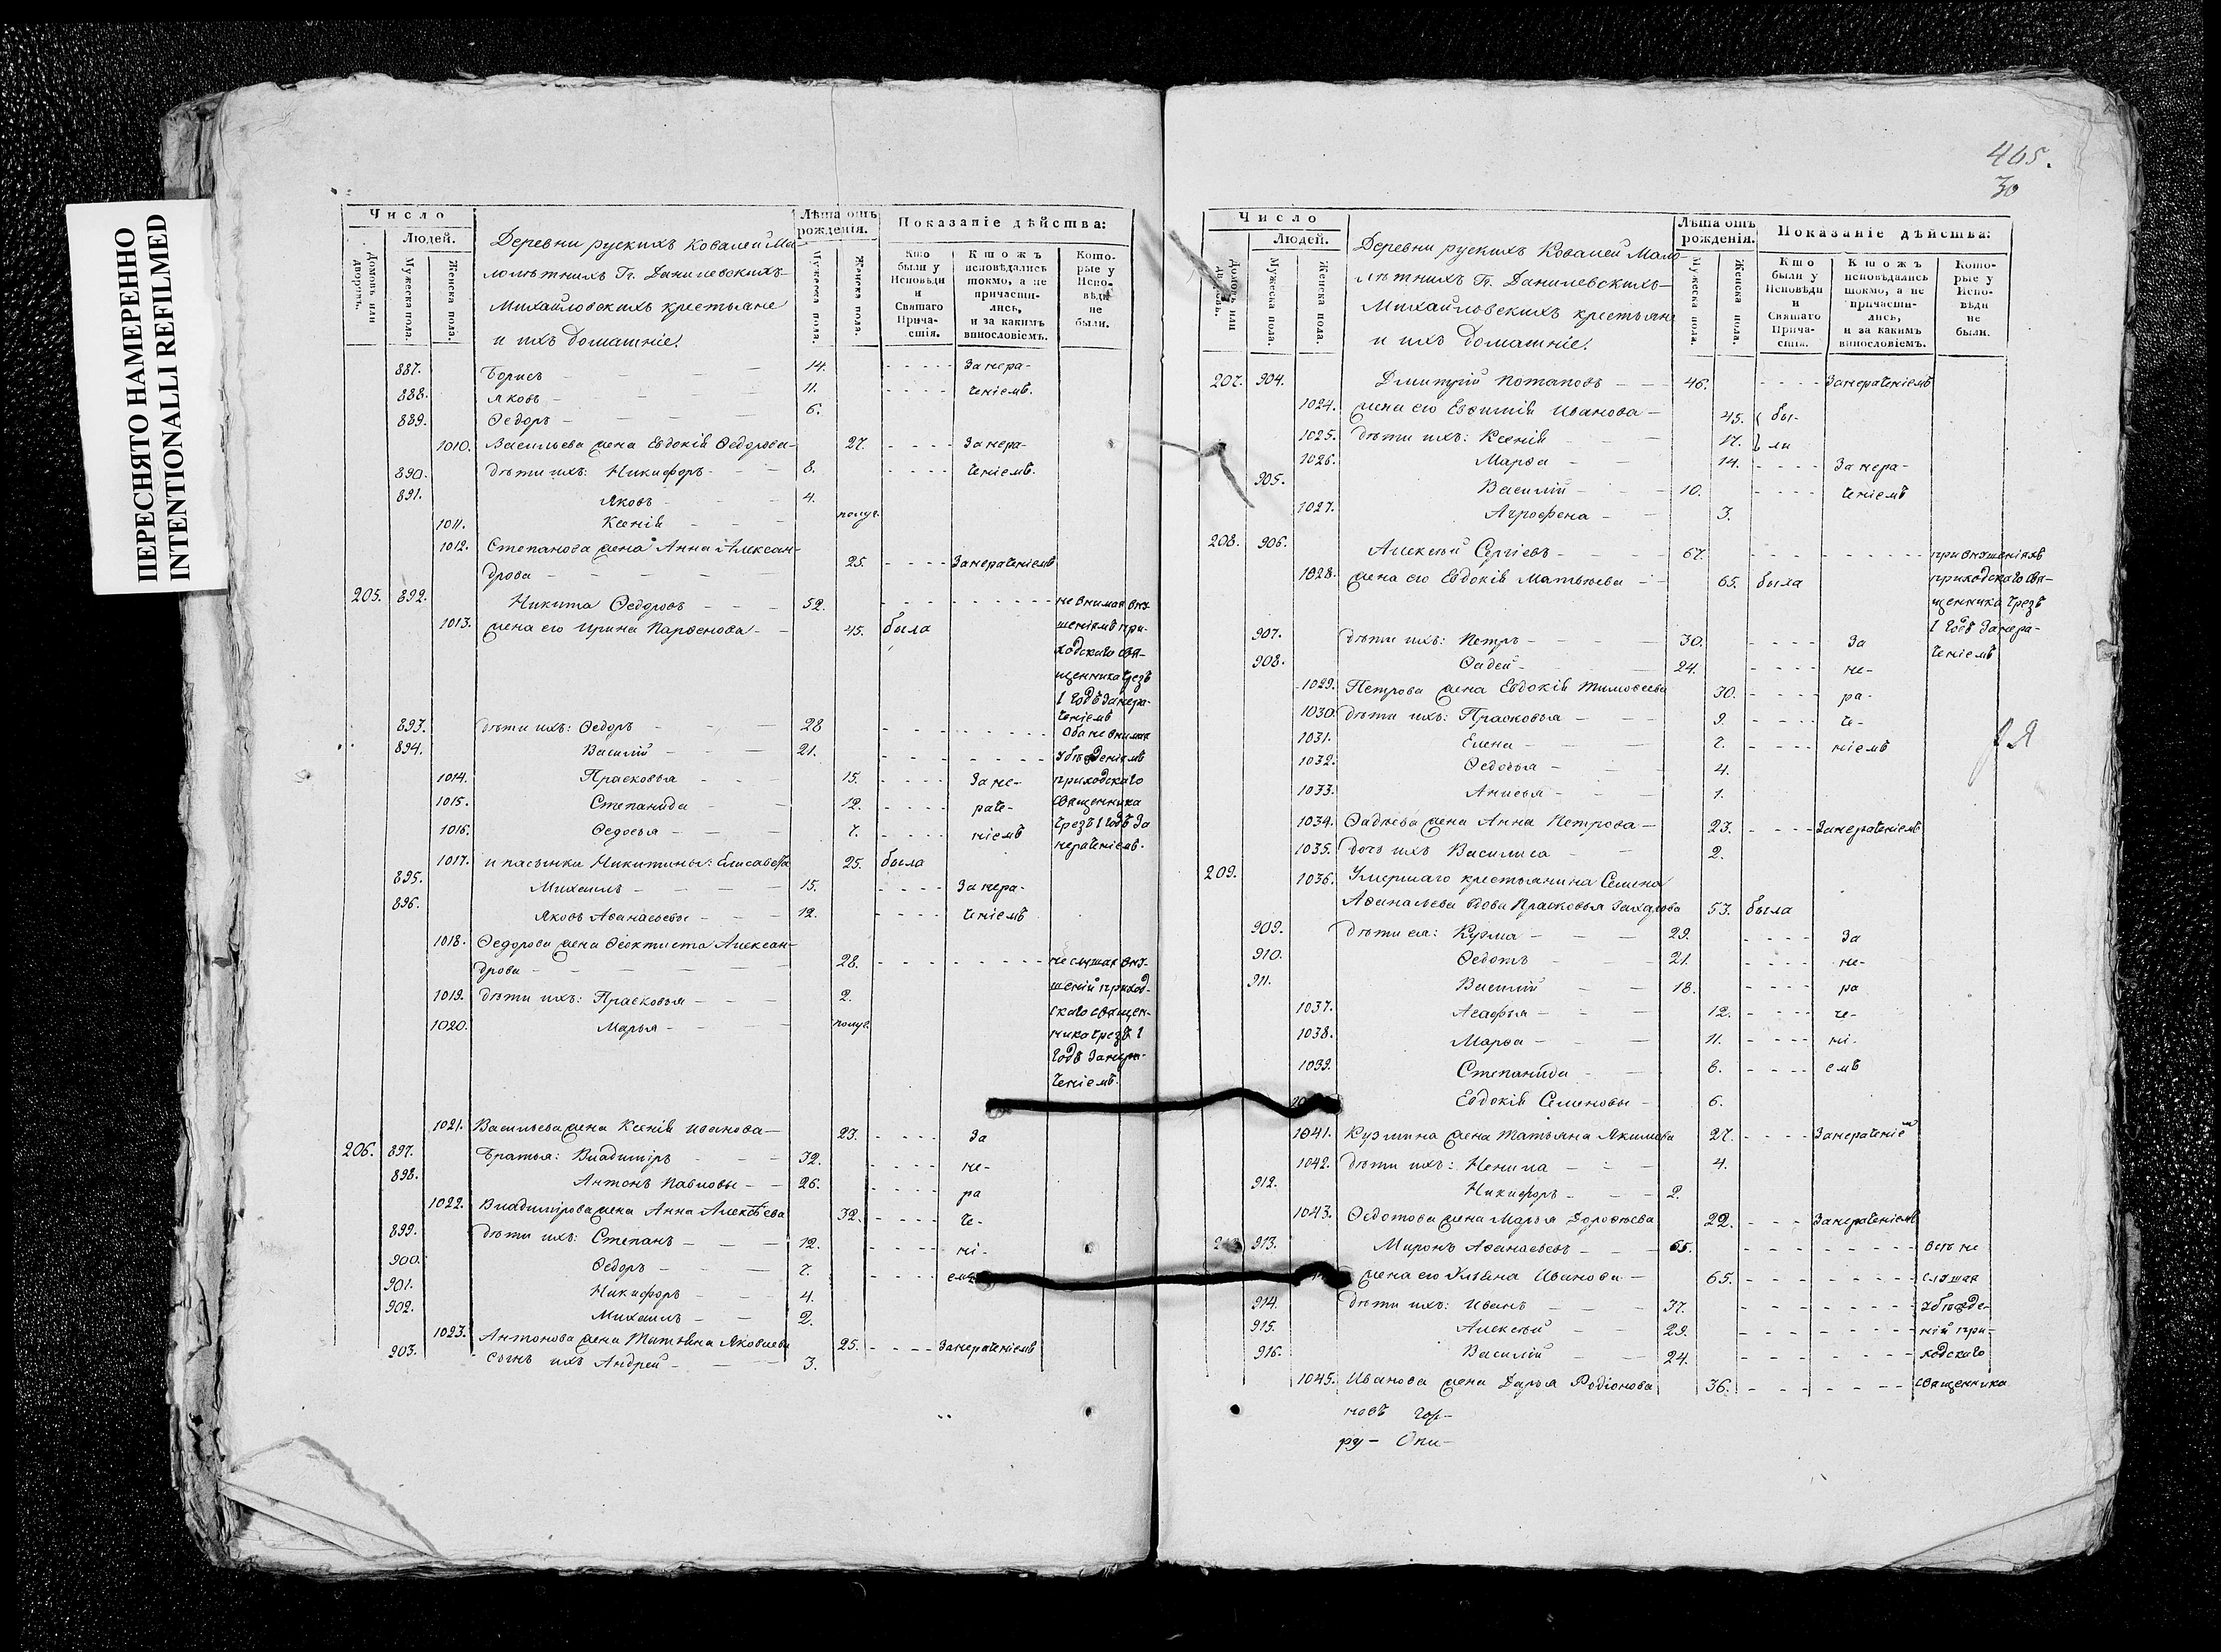 ПЕРЕСНЯТО НАМЕРЕННО
INTENTIONALLI REFILMED
Число
Людей.
Домовъ или дворовъ.
Мужеска пола.
Женска пола.
Деревни рускихъ Ковалей Ма-
лолѣтнихъ Гг. Данилевскихъ-
Михайловскихъ крестьяне
и ихъ домашніе.
Лѣта отъ рожденія.
Мужеска пола.
Женска пола.
Показаніе дѣйства:
Кто были у Исповѣди и Святаго Прича-стія.
Ктожъ исповѣдались токмо, а не причасти-лись, и за какимъ винословіемъ.
Кото-рые у Испо-вѣди не были.
887. Борисъ - 14. - За нера-
888. Яковъ - 11. - ченіемъ.
889. Ѳедоръ - 6.
1010. Васильева жена Евдокія Ѳедорова - 27. - За нера-
890. дѣти ихъ: Никифоръ - 8. - ченіемъ.
891. Яковъ - 4.
1011. Ксенія - полуг.
1012. Степанова жена Анна Алексан-
дрова - 25. - За нераченіемъ
205. 892. Никита Ѳедоровъ - 52. - не внимая вну-
1013. жена его Ирина Парѳенова - 45. была шеніямъ при-
ходскаго свя-
щенника чрезъ
1 годъ за нера-
ченіемъ
893. дѣти ихъ: Ѳедоръ - 28 - Оба не внимая
894. Василій - 21. - убѣжденіямъ
1014. Прасковья - 15. - За не- приходскаго
1015. Степанида - 12. - раче- священника
1016. Ѳедосья - 7. - ніемъ чрезъ 1 годъ за
нераченіемъ.
1017. и пасынки Никитины: Елисавета 25. была
895. Михаилъ - 15. - За нера-
896. Яковъ Аѳанасьевы - 12. - ченіемъ
1018. Ѳедорова жена Ѳеоктиста Алексан-
дрова - 28. - не слушая вну-
1019. дѣти ихъ: Прасковья - 2. шеній приход-
1020. Марья - полуг. скаго священ-
ника чрезъ 1
годъ за нера-
ченіемъ.
1021. Васильева жена Ксенія Иванова - 23. - За
206. 897. Братья: Владиміръ - 32. - не-
898. Антонъ Павловы - 26. - ра
1022. Владимірова жена Анна Алексѣева 32. - че-
899. дѣти ихъ: Степанъ - 12. - ні-
900. Ѳедоръ - 7. - емъ
901. Никифоръ - 4.
902. Михаилъ - 2.
1023. Антонова жена Татьяна Яковлева 25. - За нераченіемъ
903. сынъ ихъ Андрей - 3.
465.
30
Число
Людей.
Домовъ или дворовъ.
Мужеска пола.
Женска пола.
Деревни рускихъ Ковалей Мало-
лѣтнихъ Гг. Данилевскихъ-
Михайловскихъ крестьяне
и ихъ домашніе.
Лѣта отъ рожденія.
Мужеска пола.
Женска пола.
Показаніе дѣйства:
Кто были у Исповѣди и Святаго Прича-стія.
Ктожъ исповѣдались токмо, а не причасти-лись, и за какимъ винословіемъ.
Кото-рые у Испо-вѣди не были.
207. 904. Дмитрій Потаповъ - 46. - За нераченіемъ
1024. жена его Евѳимія Иванова - 45. бы-
1025. дѣти ихъ: Ксенія 17. ли
1026. Марѳа - 14. - За нера-
905. Василій - 10. - ченіемъ
1027. Агрофена - 3.
208. 906. Алексѣй Сергіевъ - 67. - при внушеніяхъ
1028. жена его Евдокія Матвѣева - 65. была приходскаго свя-
щенника чрезъ
1 годъ за нера-
ченіемъ
907. дѣти ихъ: Петръ - 30. - За
908. Ѳадей - 24. - не-
1029. Петрова жена Евдокія Тимоѳеева 30. - ра-
1030. дѣти ихъ: Прасковья - 9. - че-
1031. Елена - 7. - ніемъ
1032. Ѳедосья - 4.
1033. Анисья - 1.
1034. Ѳадѣева жена Анна Петрова - 23. - За нераченіемъ
1035. дочь ихъ Василиса - 2.
209. 1036. Умершаго крестьянина Семена
Аѳанасьева вдова Прасковья Захарова 53. была
909. дѣти ея: Кузма - 29. - За
910. Ѳедотъ - 21. - не-
911. Василій - 18. - ра
1037. Агафья - 12. - че-
1038. Марѳа - 11. - ні-
1039. Степанида - 8. - емъ
Евдокія Семеновы - 6.
1041. Кузмина жена Татьяна Якимова 27. - За нераченіемъ
1042. дѣти ихъ: Ненила - 4.
912. Никифоръ - 2.
1043. Ѳедотова жена Марья Дороѳеева 22. - За нераченіемъ
913. Миронъ Аѳанасьевъ - 66. - всѣ не
жена его Ульяна Иванова - 65. - слушая
914. дѣти ихъ: Иванъ - 37. - убѣжде-
915. Алексѣй - 29. - ній при-
916. Василій - 24. - ходскаго
1045. Иванова жена Дарья Родіонова 36. - священника